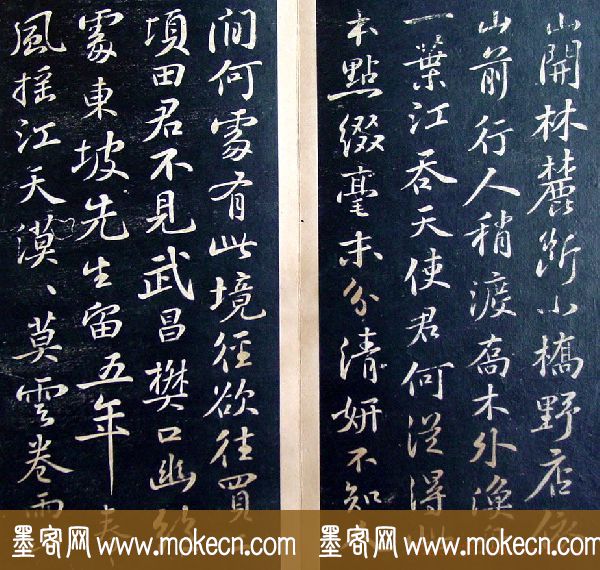 山開林麓斷小橋野店依
山前行人稍渡喬木外漁
一葉江吞天使君何從得此
本點綴毫末分清妍不知
間何處有此境徑欲往買
頃田君不見武昌樊口幽絕
處東坡先生留五年春
風搖江天漠、莫雲卷雨
墨客网 www.mokecn.com 墨客网 www.mokecn.com